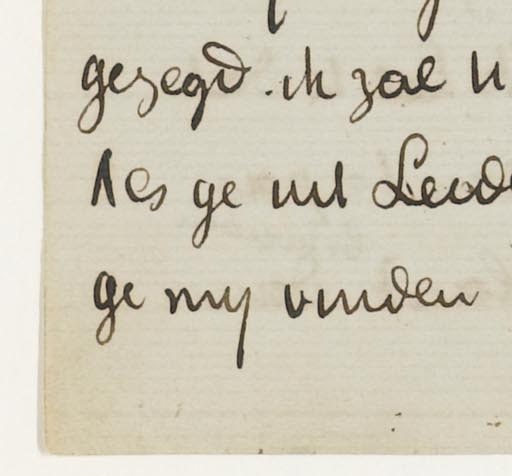 gezegd. ik zal U
Als ge uit Leid
ge mij vinden